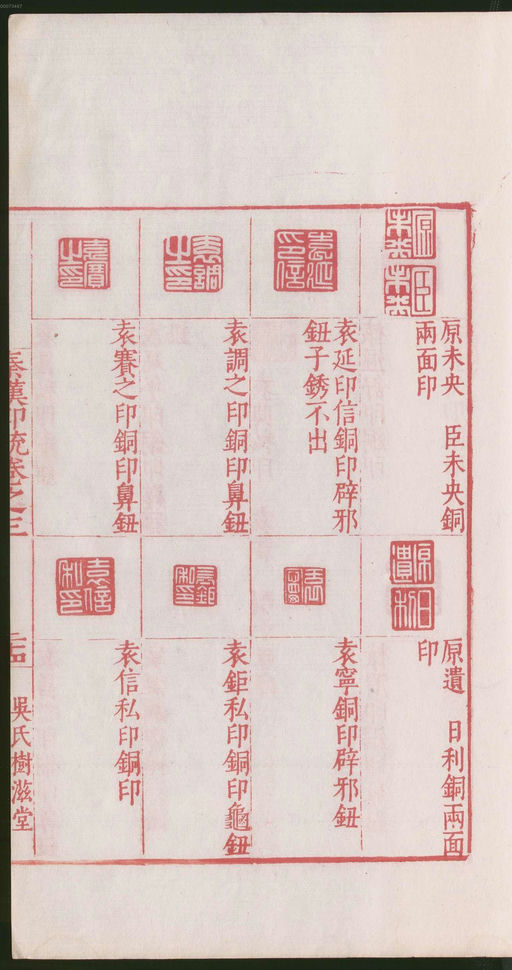 00073467
原未央　臣未央銅
兩面印
袁延印信銅印辟邪
鈕子銹不出
袁調之印銅印鼻鈕
袁賽之印銅印鼻鈕
原遺　日利銅兩面
印
袁寧銅印辟邪鈕
袁鉅私印銅印龜鈕
袁信私印銅印
秦漢印統卷之三
二四
吳氏樹滋堂